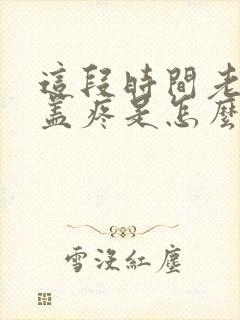 這段時間老
蓋疼是怎麼
雪沒紅塵